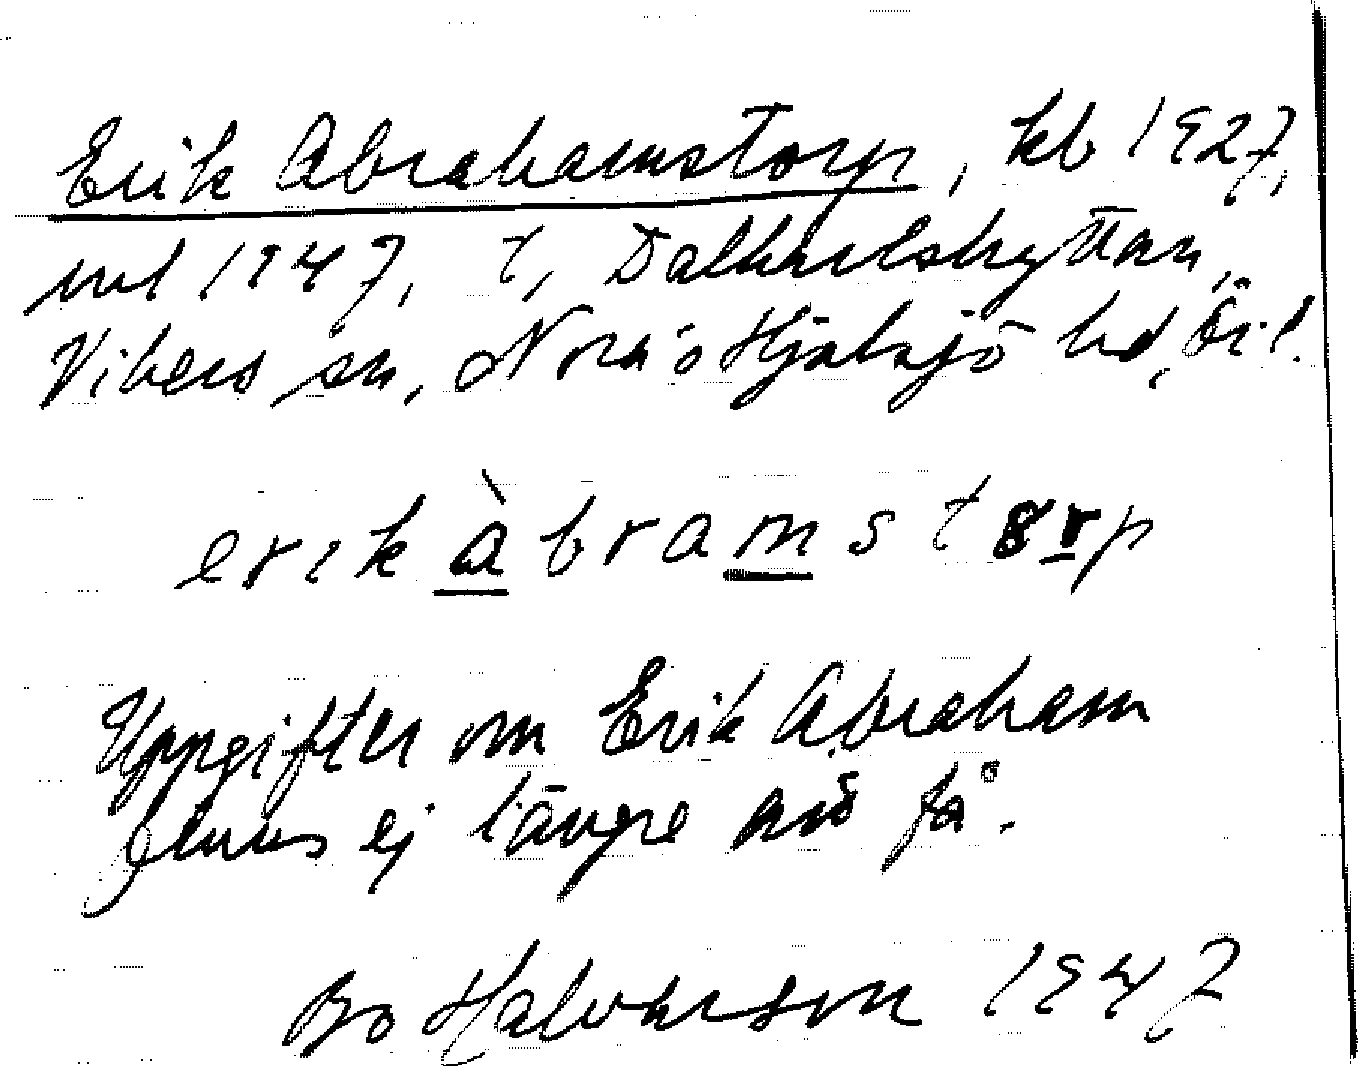 Erik Abrahamstorp, kb 1927,
uul 1947, t, Dalkarlshyttan,
Vibers sn, Nora o Hjulsjö bd, Öril.
erik àbramstorp
Uppgifter om Erik Abraham
finns ej längre att få.
Bo Halvarson 1947